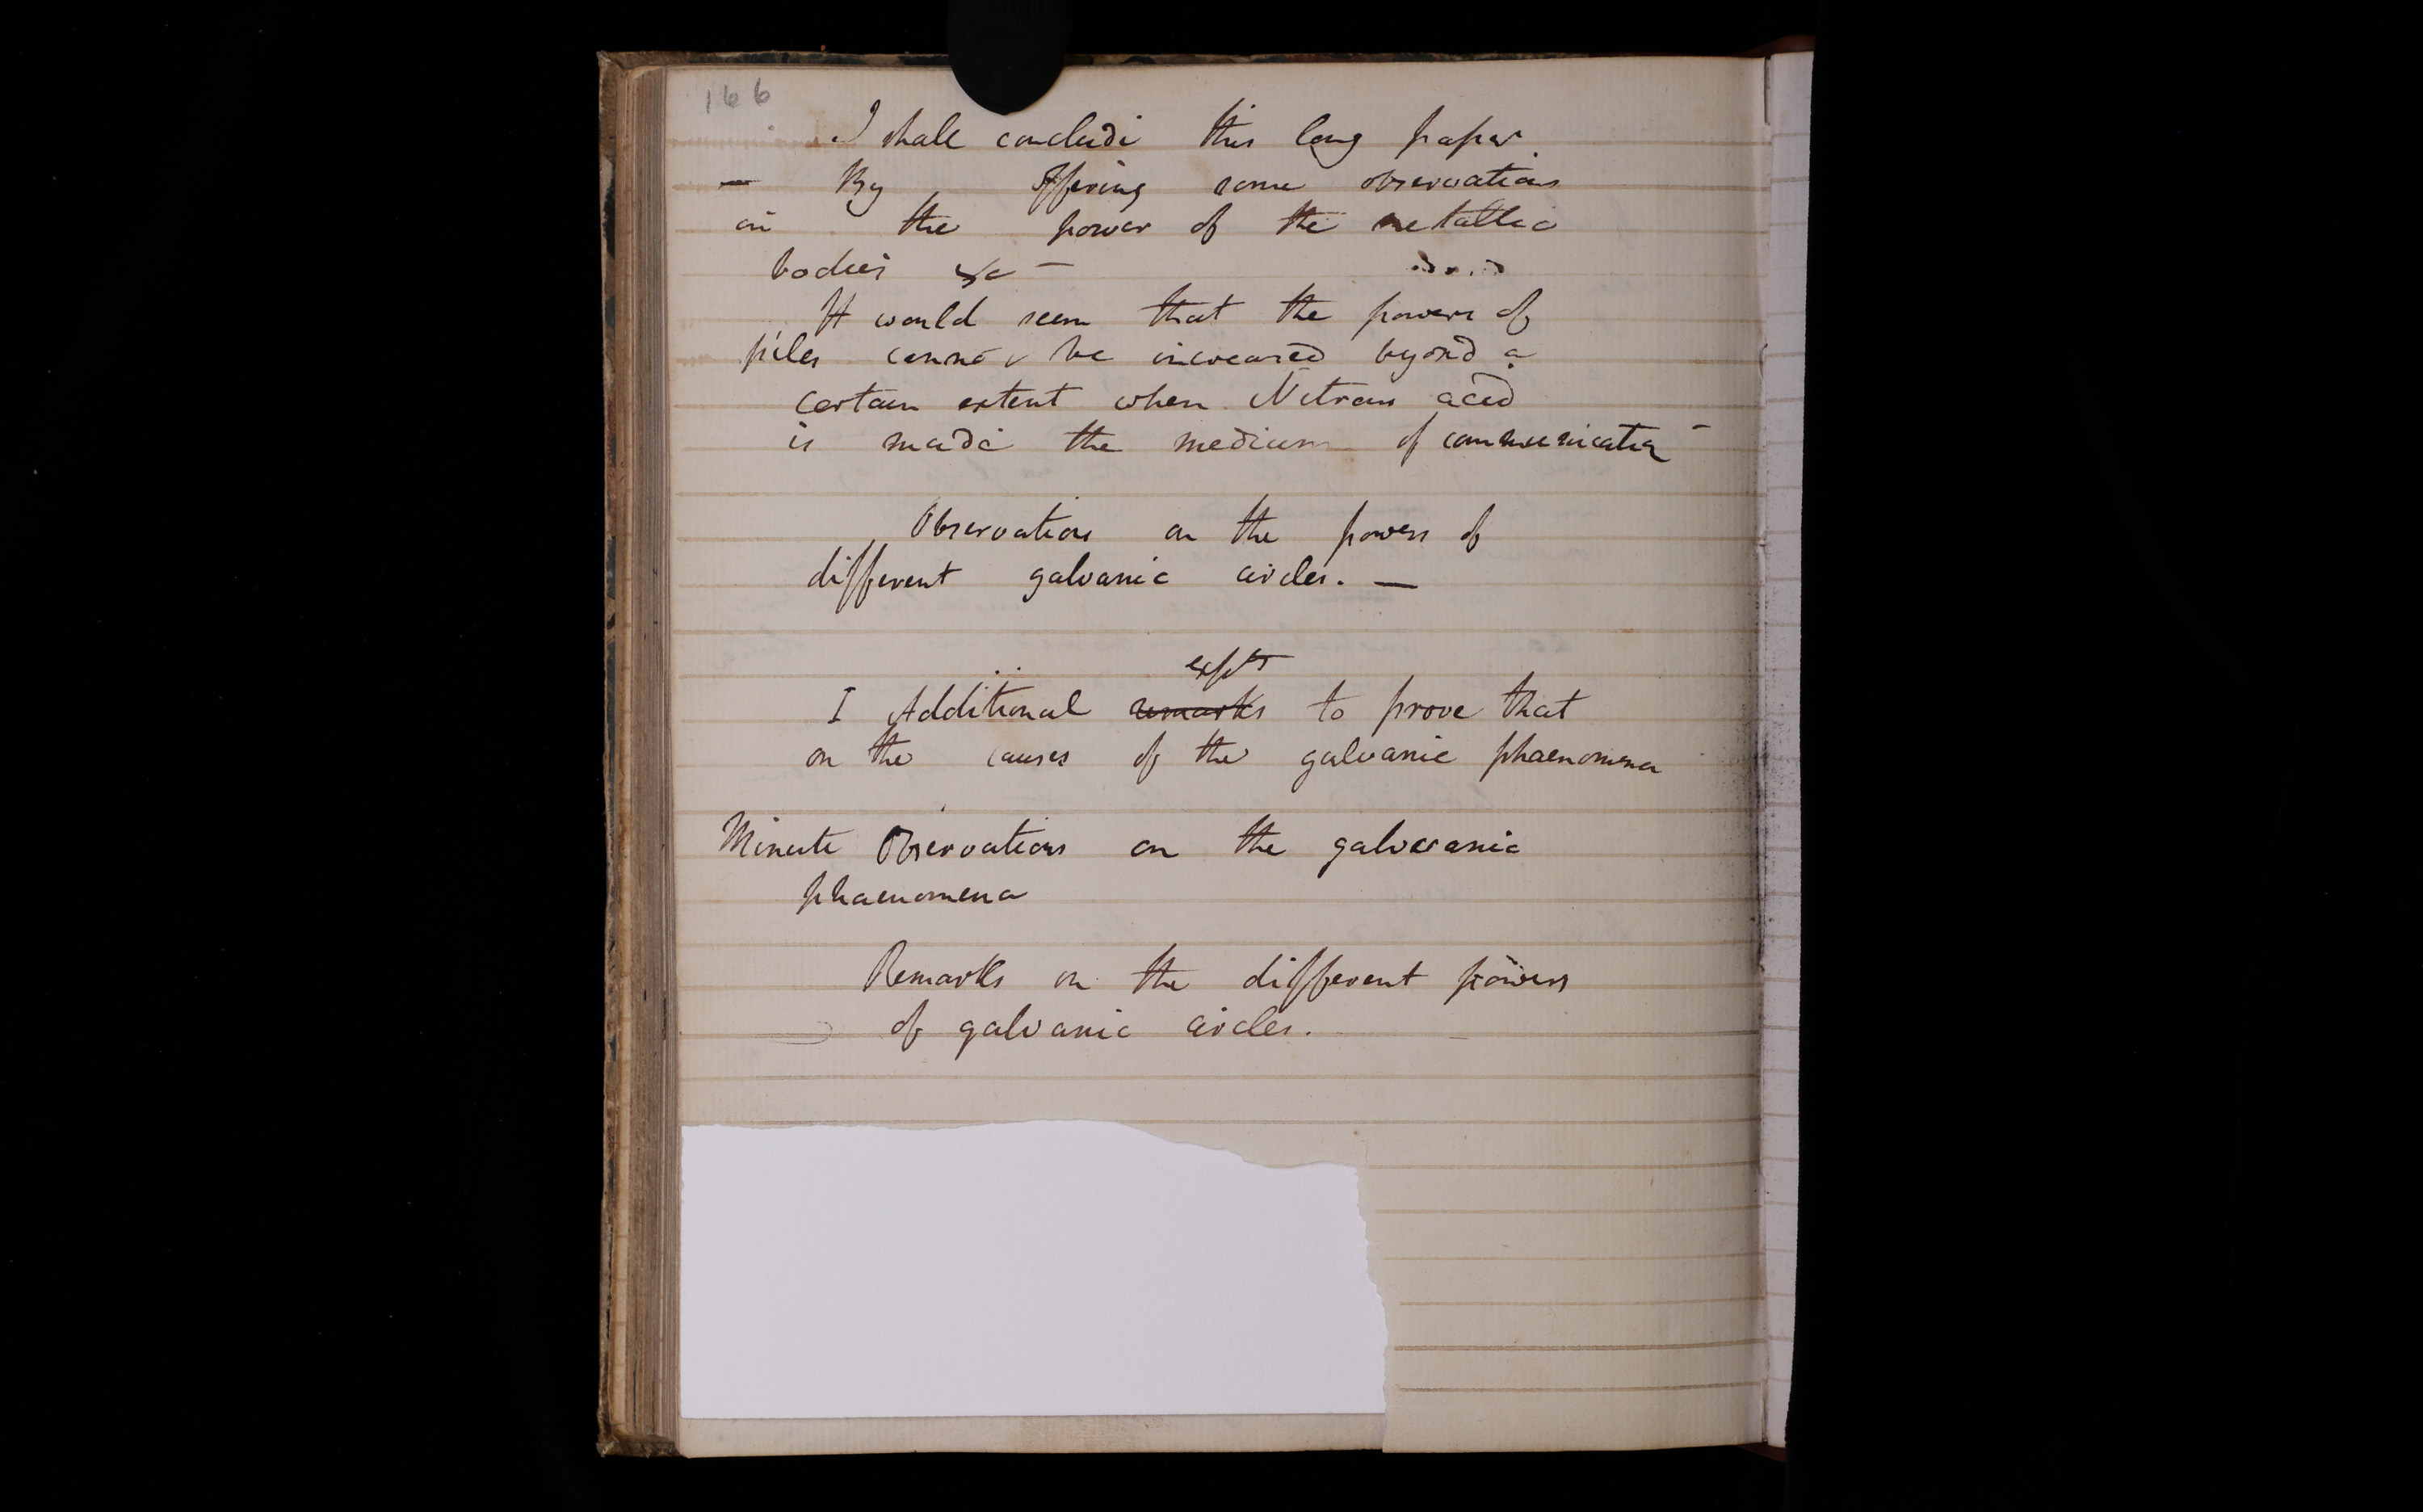 166
I shall conclude this long paper
— By offering some observations
on the power of the metallic
bodies &c —
It would seem that the powers of
piles cannot be increased beyond a
certain extent when Nitrous acid
is made the medium of communication
Observations on the powers of
different galvanic circles. —
expts
I Additional remarks to prove that
on the causes of the galvanic phaenomena
Minute Observations on the galvanic
phaenomena
Remarks on the different powers
of galvanic circles.